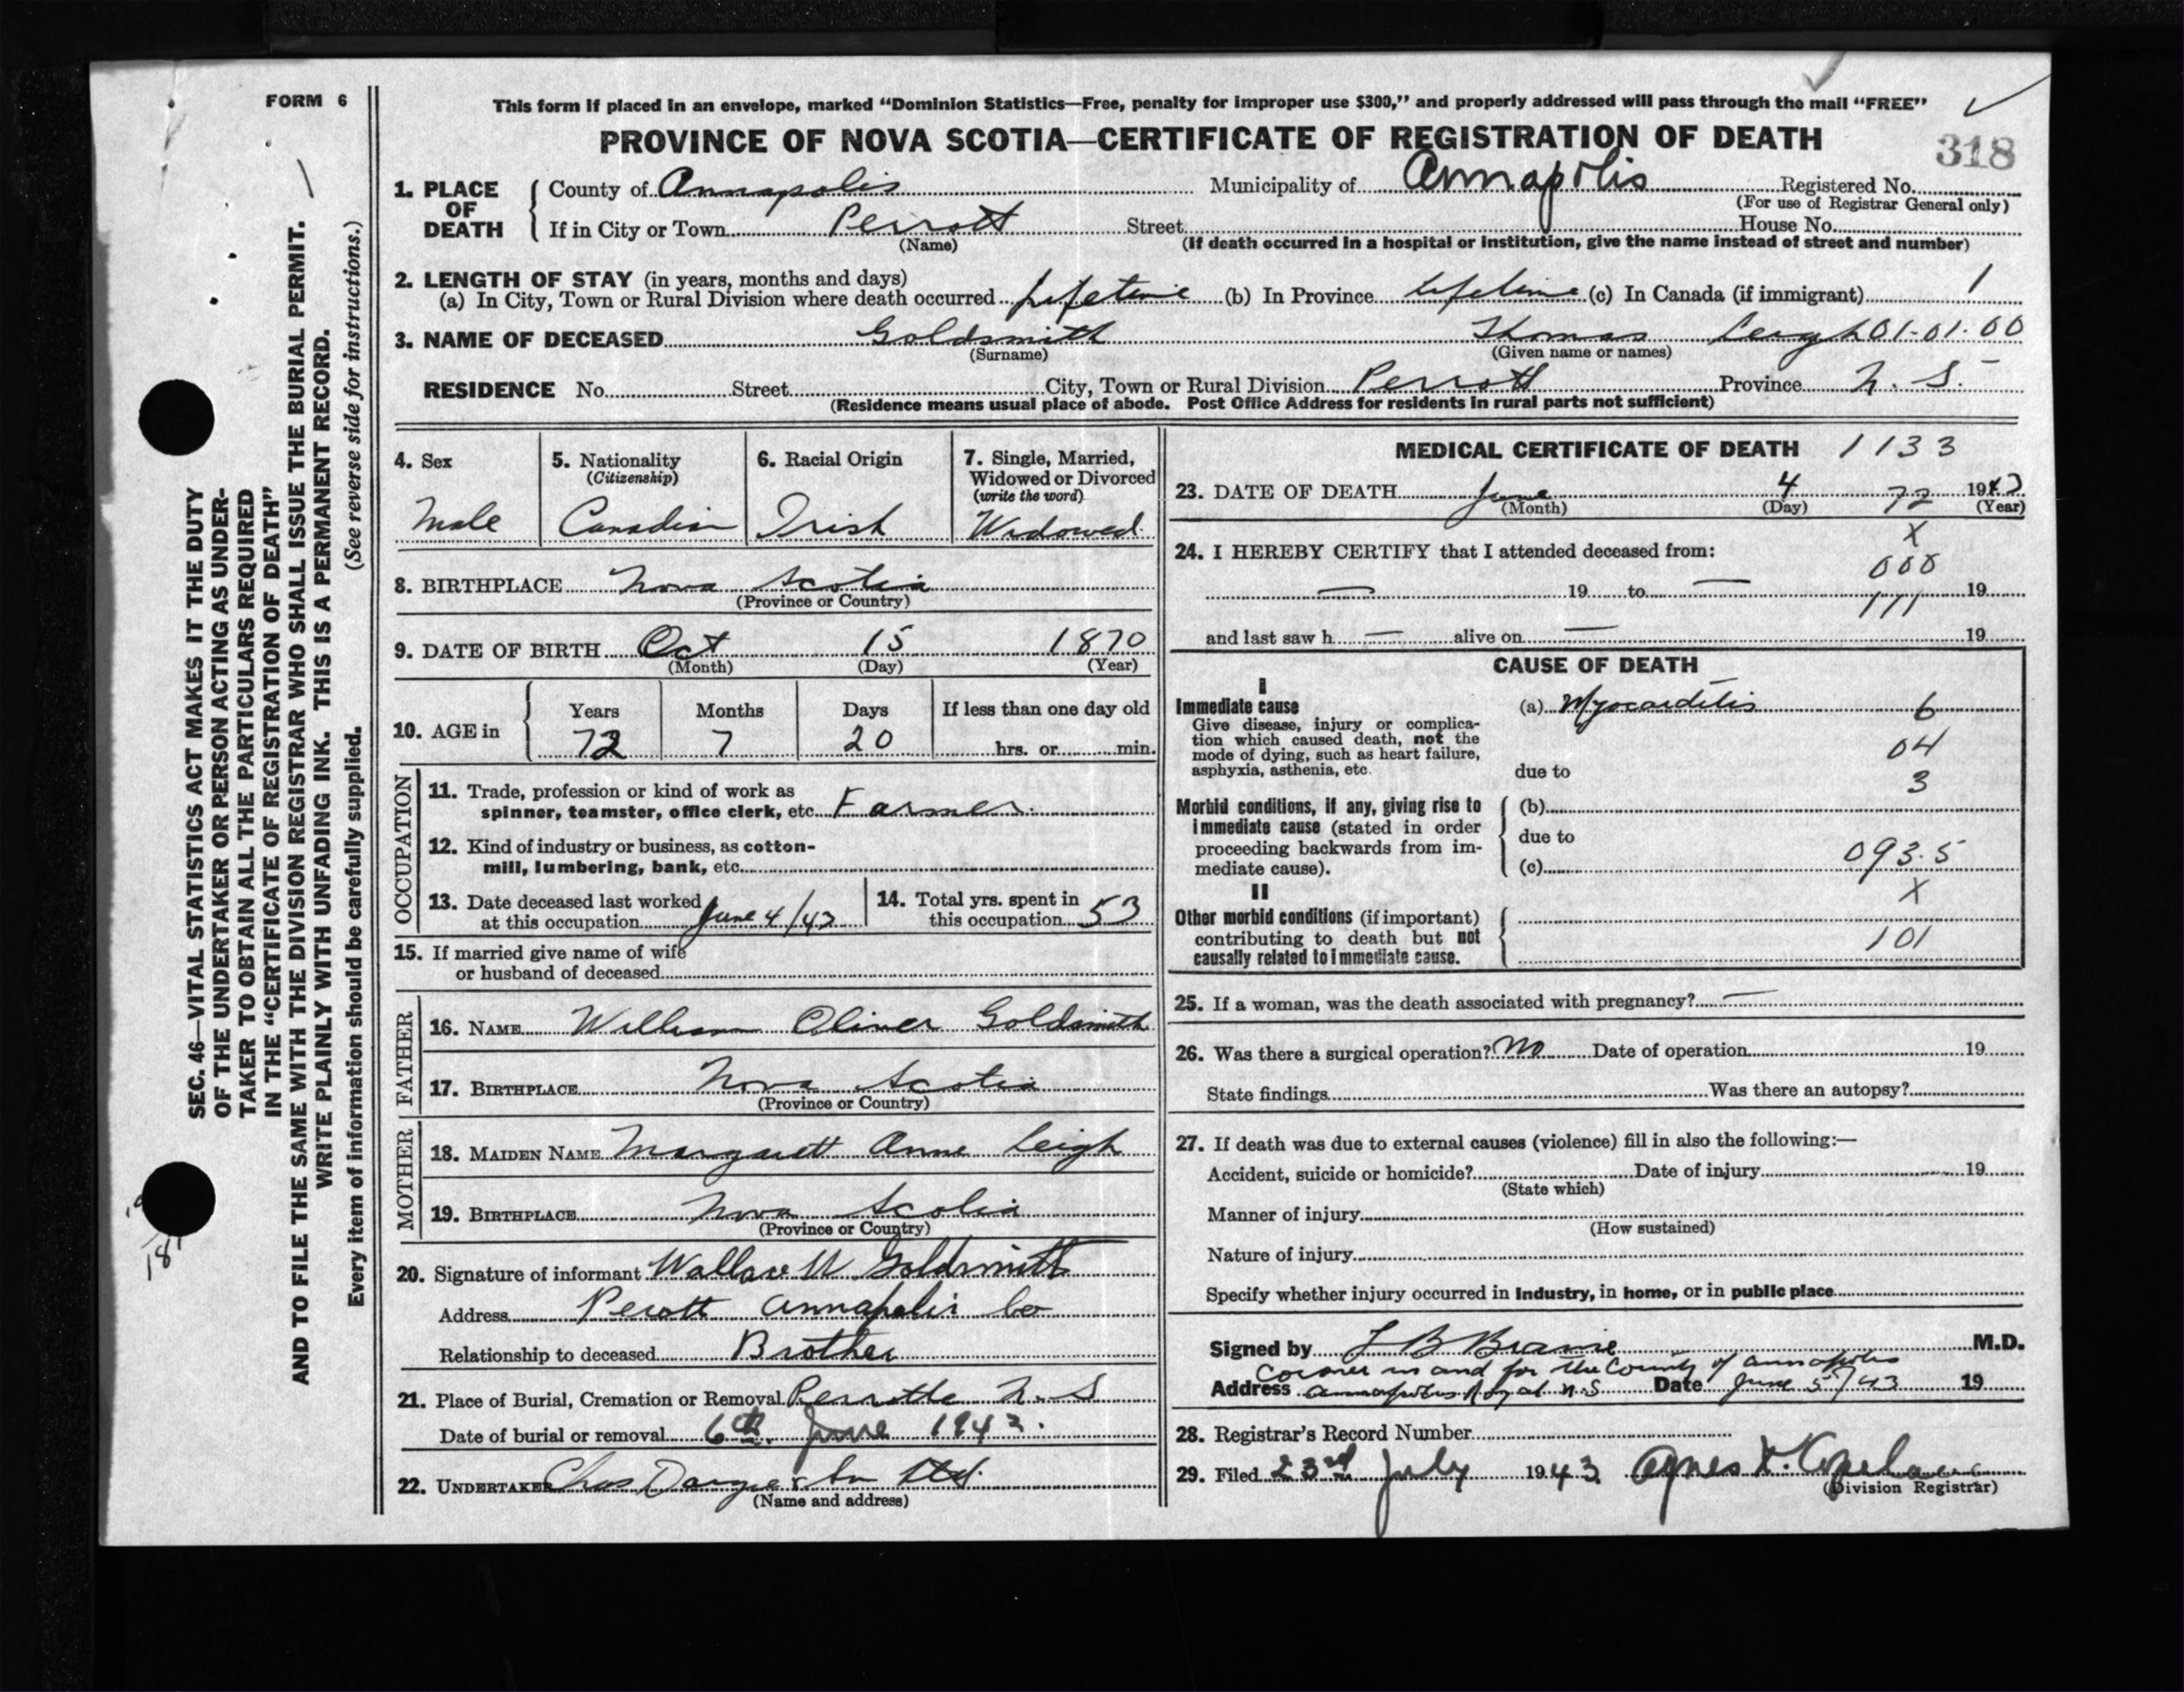 FORM 6
This form if placed in an envelope, marked “Dominion Statistics—Free, penalty for improper use $300,” and properly addressed will pass through the mail “FREE”
PROVINCE OF NOVA SCOTIA—CERTIFICATE OF REGISTRATION OF DEATH
318
1. PLACE OF DEATH { County of Annapolis Municipality of Annapolis Registered No.
(For use of Registrar General only)
If in City or Town Perrott Street House No.
(Name) (If death occurred in a hospital or institution, give the name instead of street and number)
2. LENGTH OF STAY (in years, months and days)
(a) In City, Town or Rural Division where death occurred Lifetime (b) In Province Lifetime (c) In Canada (if immigrant) 1
3. NAME OF DECEASED Goldsmith Thomas Leigh 01-01-00
(Surname) (Given name or names)
RESIDENCE No. Street City, Town or Rural Division Perrott Province N. S.
(Residence means usual place of abode. Post Office Address for residents in rural parts not sufficient)
4. Sex
Male
5. Nationality
(Citizenship)
Canadian
6. Racial Origin
Irish
7. Single, Married,
Widowed or Divorced
(write the word)
Widowed
8. BIRTHPLACE Nova Scotia
(Province or Country)
9. DATE OF BIRTH Oct 15 1870
(Month) (Day) (Year)
10. AGE in { Years Months Days If less than one day old
72 7 20 hrs. or min.
OCCUPATION
11. Trade, profession or kind of work as
spinner, teamster, office clerk, etc. Farmer
12. Kind of industry or business, as cotton-
mill, lumbering, bank, etc.
13. Date deceased last worked
at this occupation June 4/43
14. Total yrs. spent in
this occupation 53
15. If married give name of wife
or husband of deceased
FATHER
16. NAME William Oliver Goldsmith
17. BIRTHPLACE Nova Scotia
(Province or Country)
MOTHER
18. MAIDEN NAME Margarett Anne Leigh
19. BIRTHPLACE Nova Scotia
(Province or Country)
20. Signature of informant Wallace W Goldsmith
Address Perott Annapolis Co
Relationship to deceased Brother
21. Place of Burial, Cremation or Removal Perrotte N. S
Date of burial or removal 6th. June 1943.
22. UNDERTAKER Chas Ltd.
(Name and address)
MEDICAL CERTIFICATE OF DEATH 1133
23. DATE OF DEATH June 4 72 1943
(Month) (Day) (Year)
X
24. I HEREBY CERTIFY that I attended deceased from:
000
— 19 to — 19
111
and last saw h — alive on — 19
CAUSE OF DEATH
I
Immediate cause
Give disease, injury or complica-
tion which caused death, not the
mode of dying, such as heart failure,
asphyxia, asthenia, etc.
(a) Myocarditis 6
04
due to
3
Morbid conditions, if any, giving rise to
immediate cause (stated in order
proceeding backwards from im-
mediate cause).
(b)
due to
(c) 093.5
X
II
Other morbid conditions (if important)
contributing to death but not
causally related to immediate cause.
101
25. If a woman, was the death associated with pregnancy? —
26. Was there a surgical operation? No Date of operation 19
State findings Was there an autopsy?
27. If death was due to external causes (violence) fill in also the following:—
Accident, suicide or homicide? Date of injury 19
(State which)
Manner of injury
(How sustained)
Nature of injury
Specify whether injury occurred in Industry, in home, or in public place
Signed by L B Braine M.D.
Coroner in and for the County of Annapolis
Address Annapolis Royal N.S Date June 5/43 19
28. Registrar's Record Number
29. Filed 23rd July 1943 Agnes
(Division Registrar)
SEC. 46—VITAL STATISTICS ACT MAKES IT THE DUTY
OF THE UNDERTAKER OR PERSON ACTING AS UNDER-
TAKER TO OBTAIN ALL THE PARTICULARS REQUIRED
IN THE “CERTIFICATE OF REGISTRATION OF DEATH”
AND TO FILE THE SAME WITH THE DIVISION REGISTRAR WHO SHALL ISSUE THE BURIAL PERMIT.
WRITE PLAINLY WITH UNFADING INK. THIS IS A PERMANENT RECORD.
Every item of information should be carefully supplied. (See reverse side for instructions.)